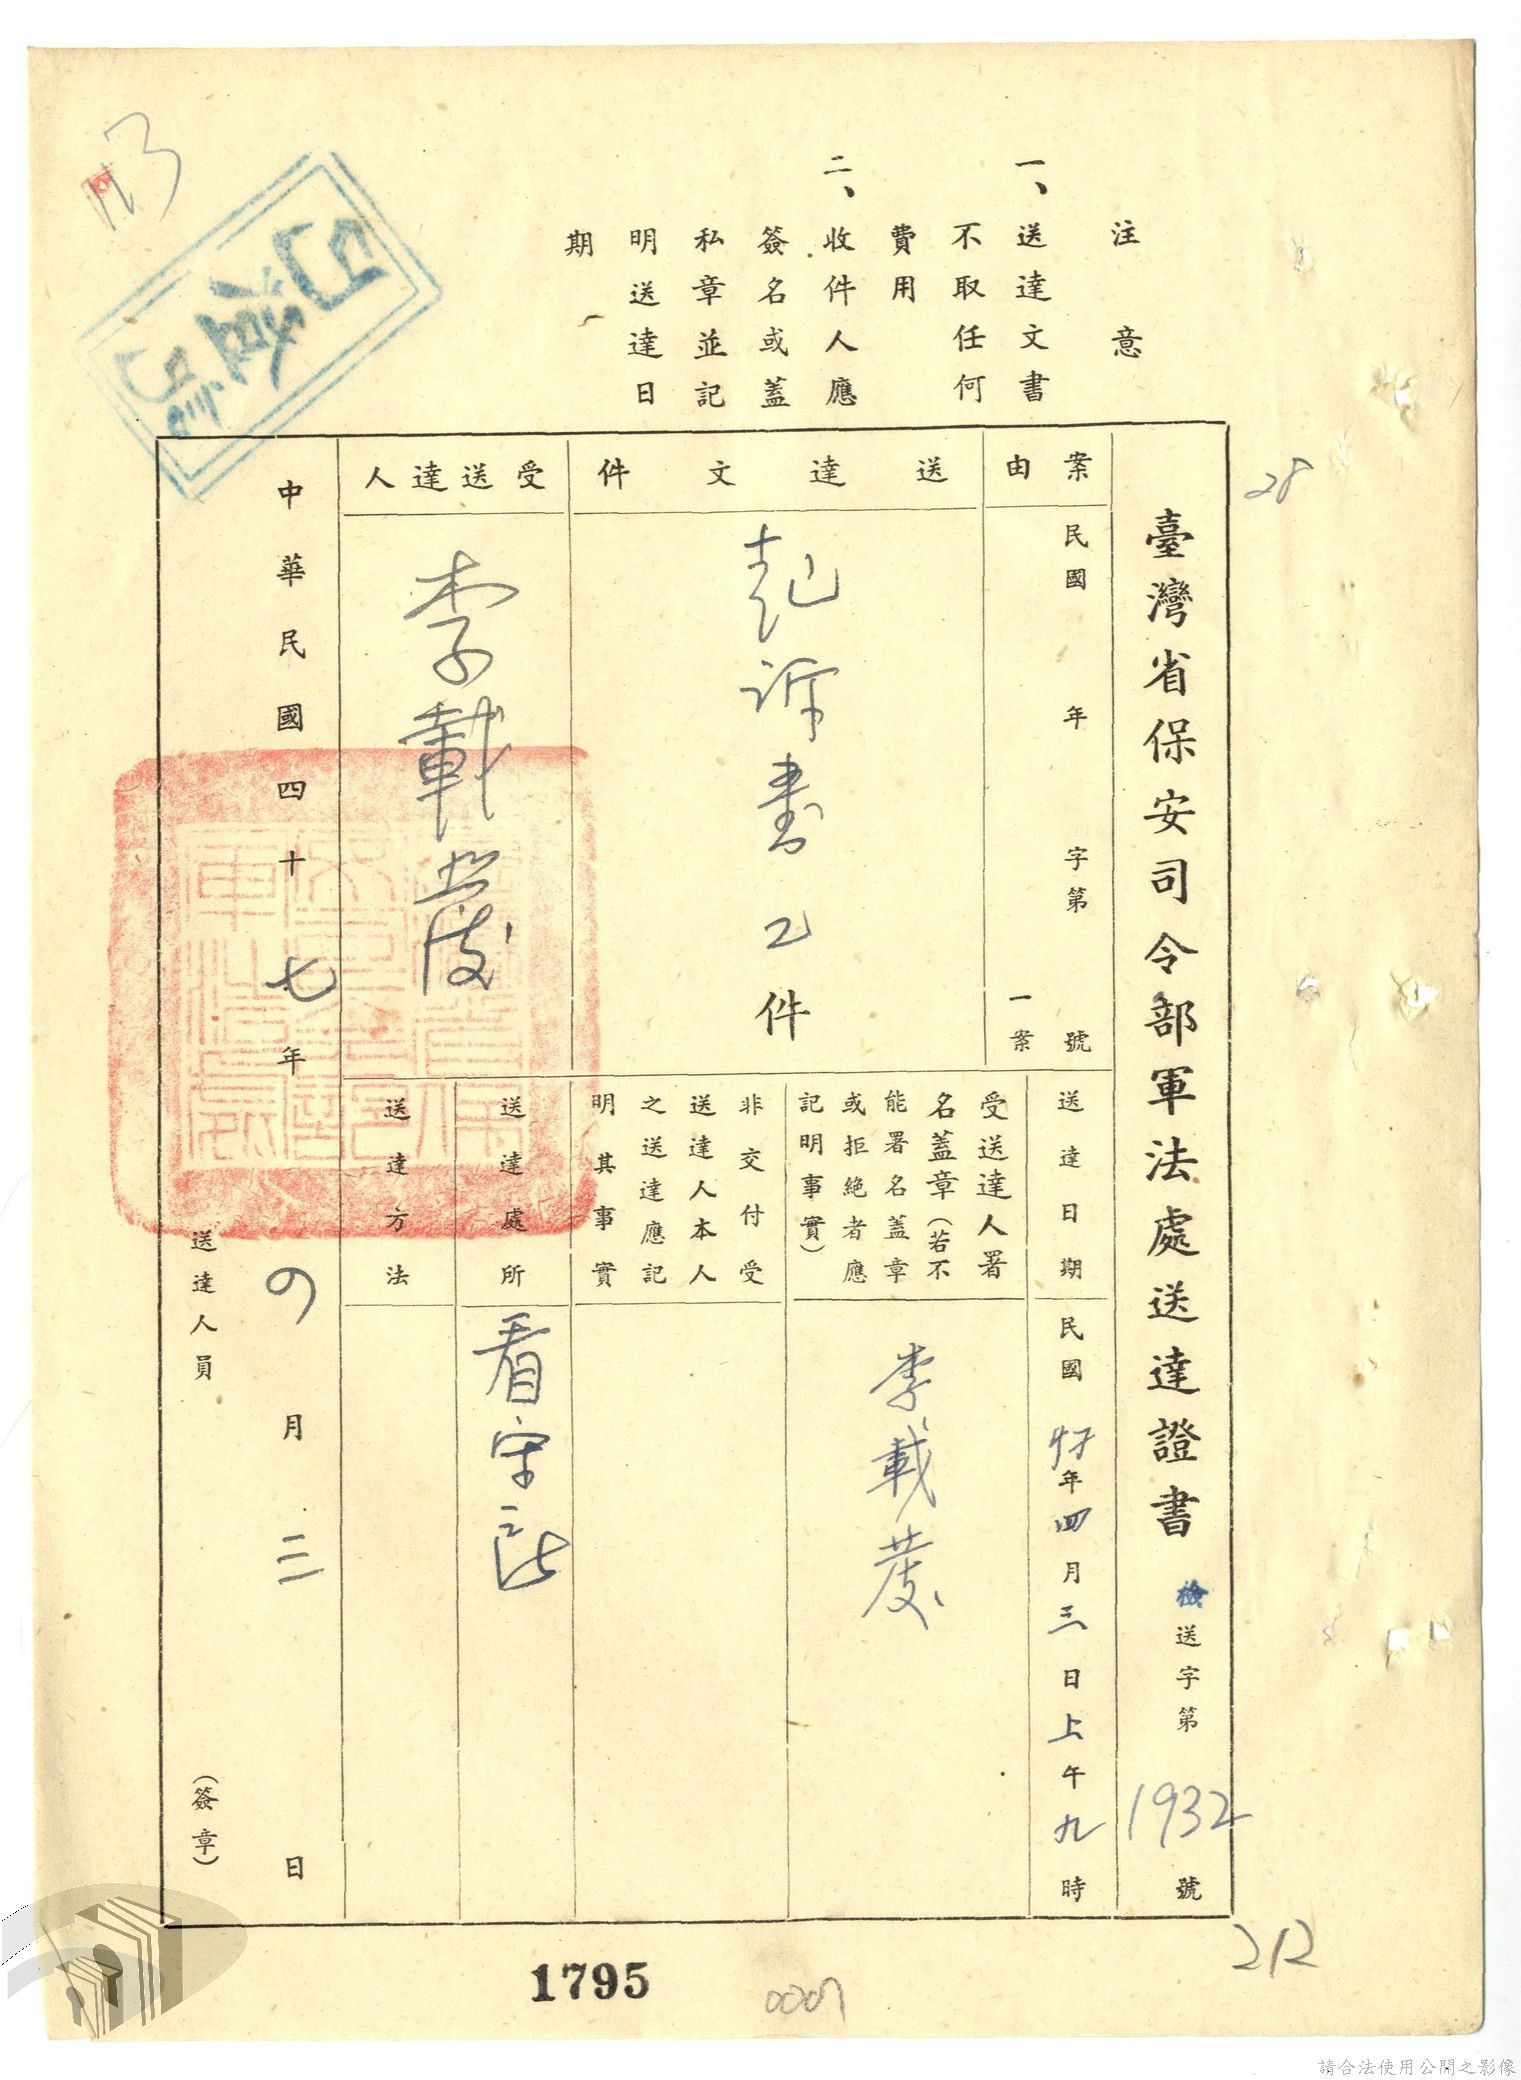 注意
一、送達文書
不取任何
費用
二、收件人應
簽名或蓋
私章並記
明送達日
期
臺灣省保安司令部軍法處送達證書
檢送字第1932號
案由
民國 年 字第 號
一案
送達文件
起訴書乙件
受送達人
李載發
送達日期
民國 年四月三日上午九時
受送達人署
名蓋章（若不
能署名蓋章
或拒絕者應
記明事實）
李載發
非交付受
送達人本人
之送達應記
明其事實
送達處所
看守所
送達方法
中華民國四十七年 月二日
送達人員
（簽章）
28
212
1795
0007
請合法使用公開之影像